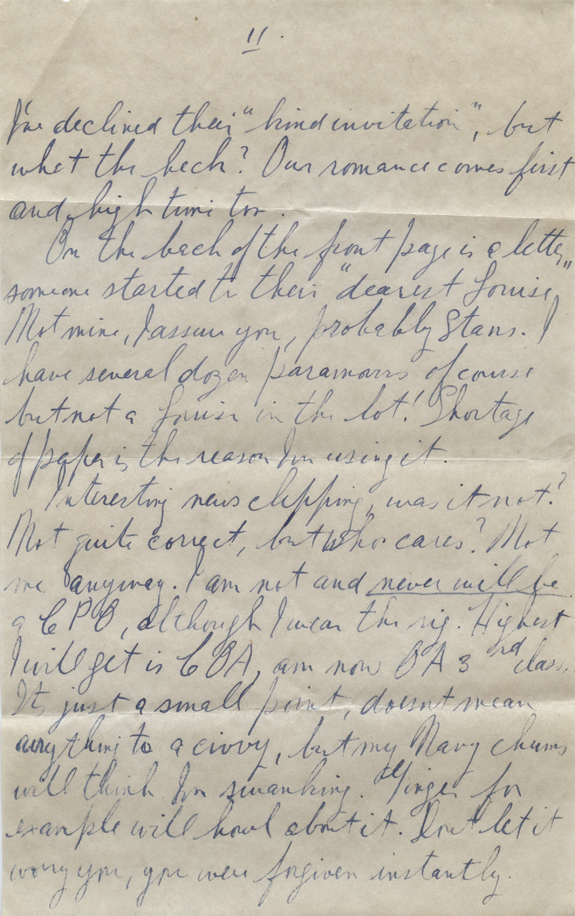 11.
I've declined their "kind invitation", but
what the heck? Our romance comes first
and high time too.
On the back of the front page is a letter
someone started to their "dearest Louise"
Not mine, I assure you, probably Stans. I
have several dozen paramours of course
but not a Louise in the lot! Shortage
of paper is the reason I'm using it.
Interesting news clipping, was it not?
Not quite correct, but who cares? Not
me anyway. I am not and never will be
a CPO, although I wear the rig. Highest
I will get is COA, am now OA 3rd class.
It's just a small point, doesn't mean
anything to a civvy, but my Navy chums
will think I'm swanking. "Ginger" for
example will howl about it. Don't let it
worry you, you were forgiven instantly.